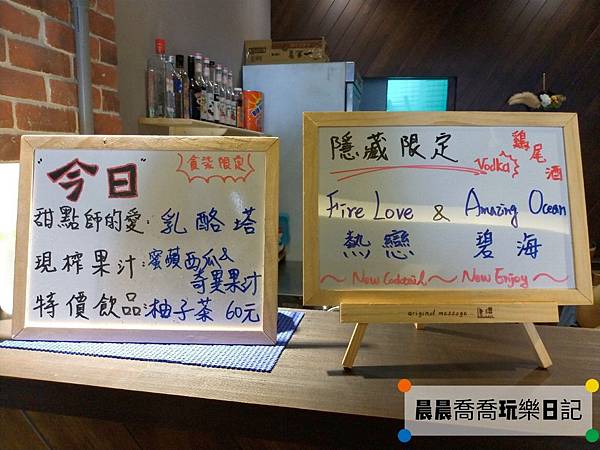 "今日"
食柒限定
甜點師的愛:乳酪塔
現榨果汁:蜜蘋西瓜&
奇異果汁
特價飲品:柚子茶 60元
隱藏限定
Vodka
鷄尾酒
Fire Love & Amazing Ocean
熱戀 碧海
~ New Cocktail ~ New Enjoy ~
original message
晨晨喬喬玩樂日記